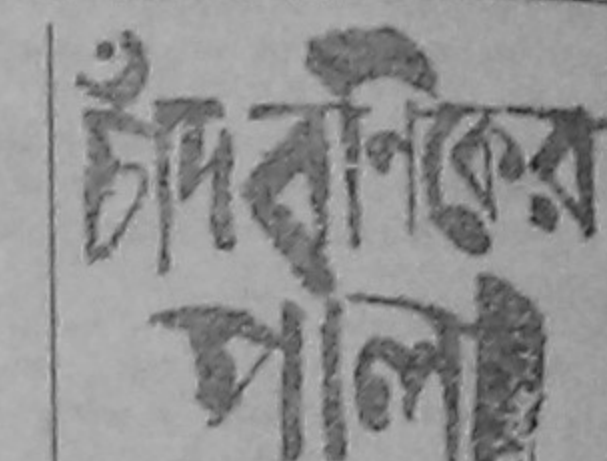 চাঁদ বণিকের
পালা